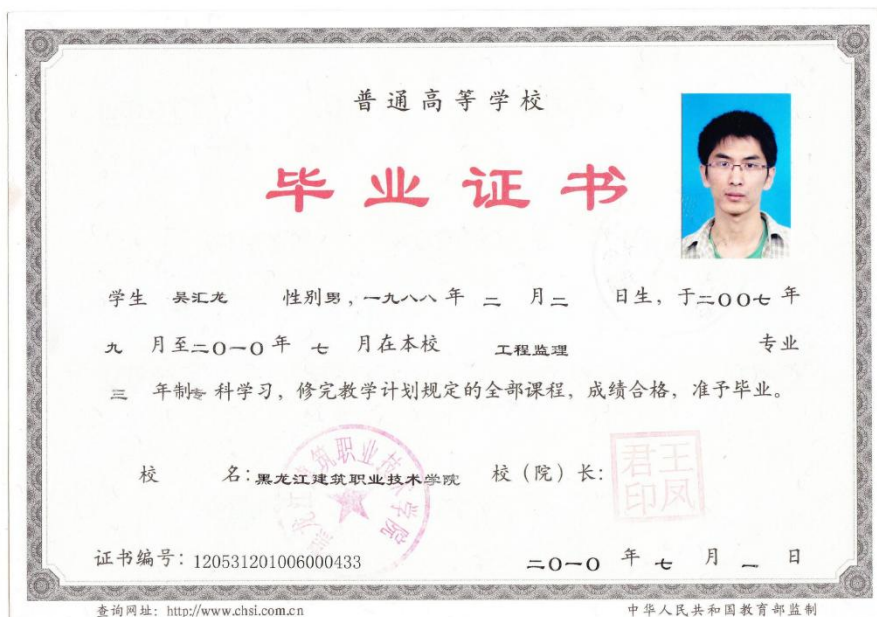 普通高等学校
毕业证书
学生 吴汇龙 性别男，一九八八年 二 月二 日生，于二00七年
九 月至二0一0年 七 月在本校 工程监理 专业
三 年制专科学习，修完教学计划规定的全部课程，成绩合格，准予毕业。
校 名：黑龙江建筑职业技术学院 校（院）长：
黑龙江建筑职业技术学院
王凤君印
证书编号：120531201006000433 二0一0 年 七 月 一 日
查询网址：http://www.chsi.com.cn 中华人民共和国教育部监制